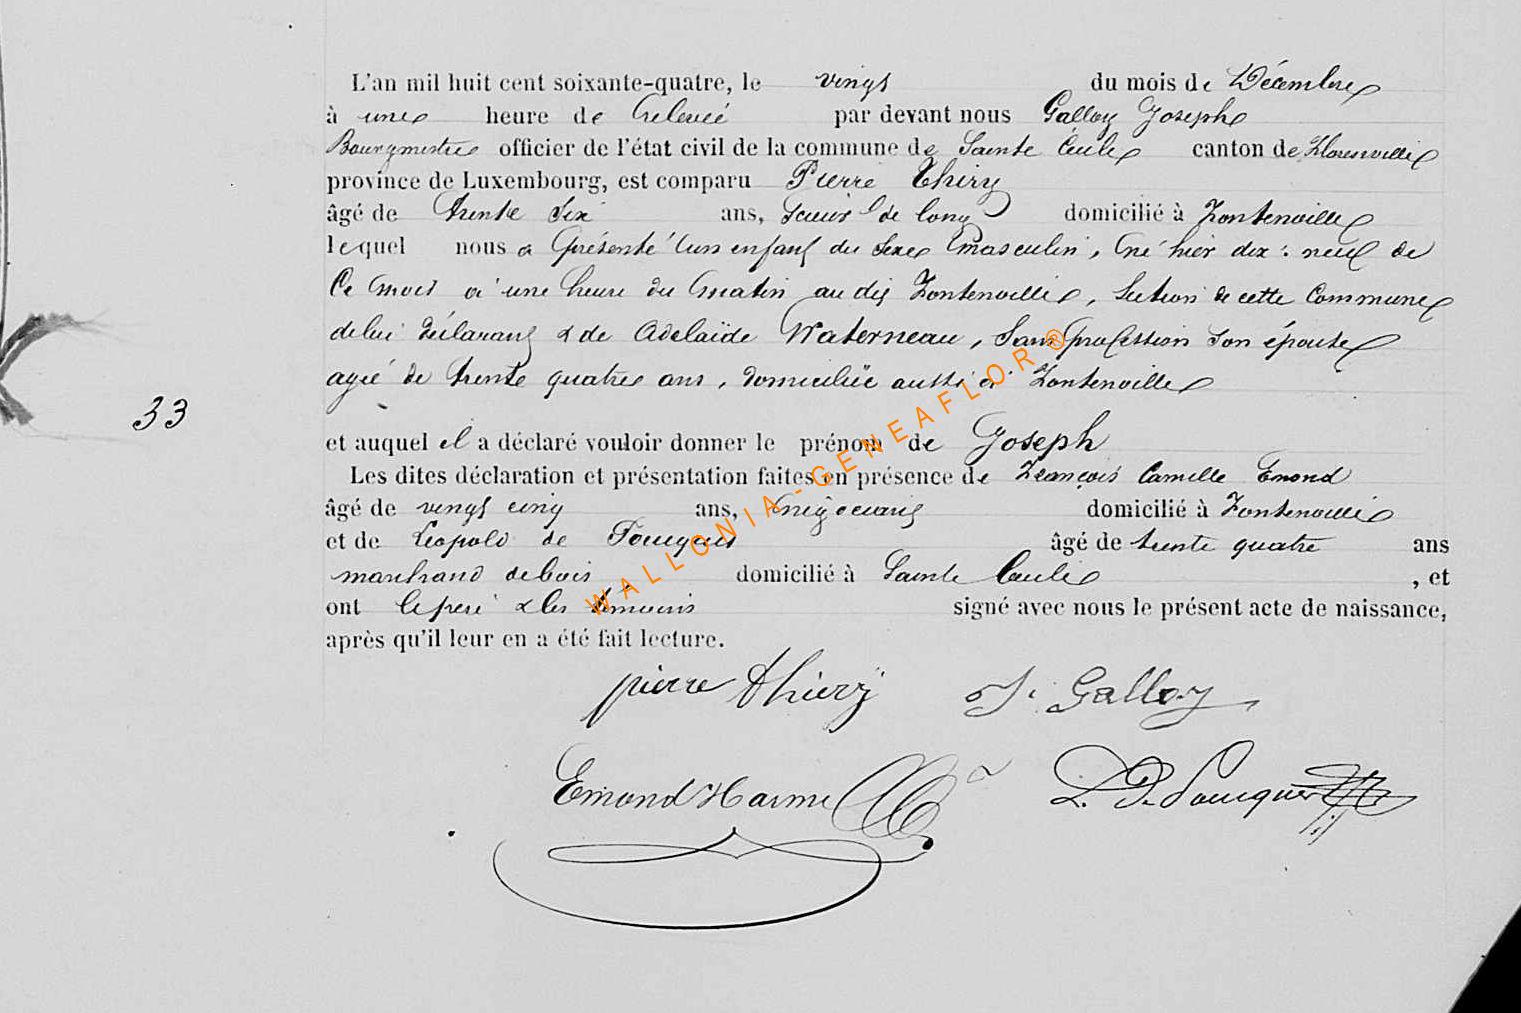 L'an mil huit cent soixante-quatre, le vingt du mois de Décembre
à une heure de relevée par devant nous Galloy Joseph
Bourgmestre officier de l'état civil de la commune de Sainte Cécile canton de Florenville
province de Luxembourg, est comparu Pierre Thiry
âgé de trente six ans, scieur de long domicilié à Fontenoille
lequel nous a présenté un enfant du sexe masculin, né hier dix-neuf de
ce mois à une heure du matin au dit Fontenoille, section de cette commune
de lui déclarant & de Adelaïde Waterneau, sans profession son épouse
agée de trente quatre ans, domiciliée aussi à Fontenoille
33
et auquel il a déclaré vouloir donner le prénom de Joseph
Les dites déclaration et présentation faites en présence de François Camille Emond
âgé de vingt cinq ans, négociant domicilié à Fontenoille
et de Léopold de âgé de trente quatre ans
marchand de bois domicilié à Sainte Cécile, et
ont le père & les témoins signé avec nous le présent acte de naissance,
après qu'il leur en a été fait lecture.
pierre thiery J. Galloy
Emond
WALLONIA-GENEAFLOR®